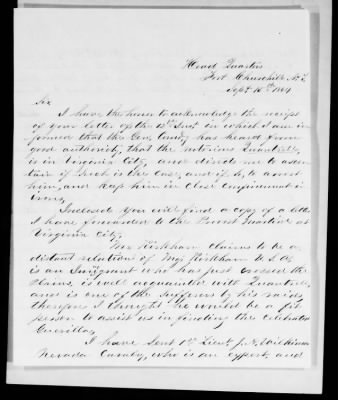 Head Quarters
Fort Churchill N.T.
Sept. 16th 1864
Sir
I have the honor to acknowledge the receipt
of your letter of the 13th Inst in which I am in-
formed that the Gen. Comdg has heard from
good authority, that the notorious Quantrell,
is in Virginia City, and directs me to ascer-
tain if such is the case, and if so, to arrest
him, and keep him in close confinement in
irons,
Inclosed you will find a copy of a letter
I have forwarded to the Provost Marshal at
Virginia City.
Mr Kirkham claims to be a
distant relation of Maj Kirkham U.S.A.
is an Emigrant who has just crossed the
Plains, is well acquainted with Quantrell
and is one of the sufferers by his raids,
therefore I thought he would be a fit
person to assist us in finding the celebrated
Guerilla,
I have sent 1st Lieut. J. N.
Nevada Cavalry, who is an expert, and